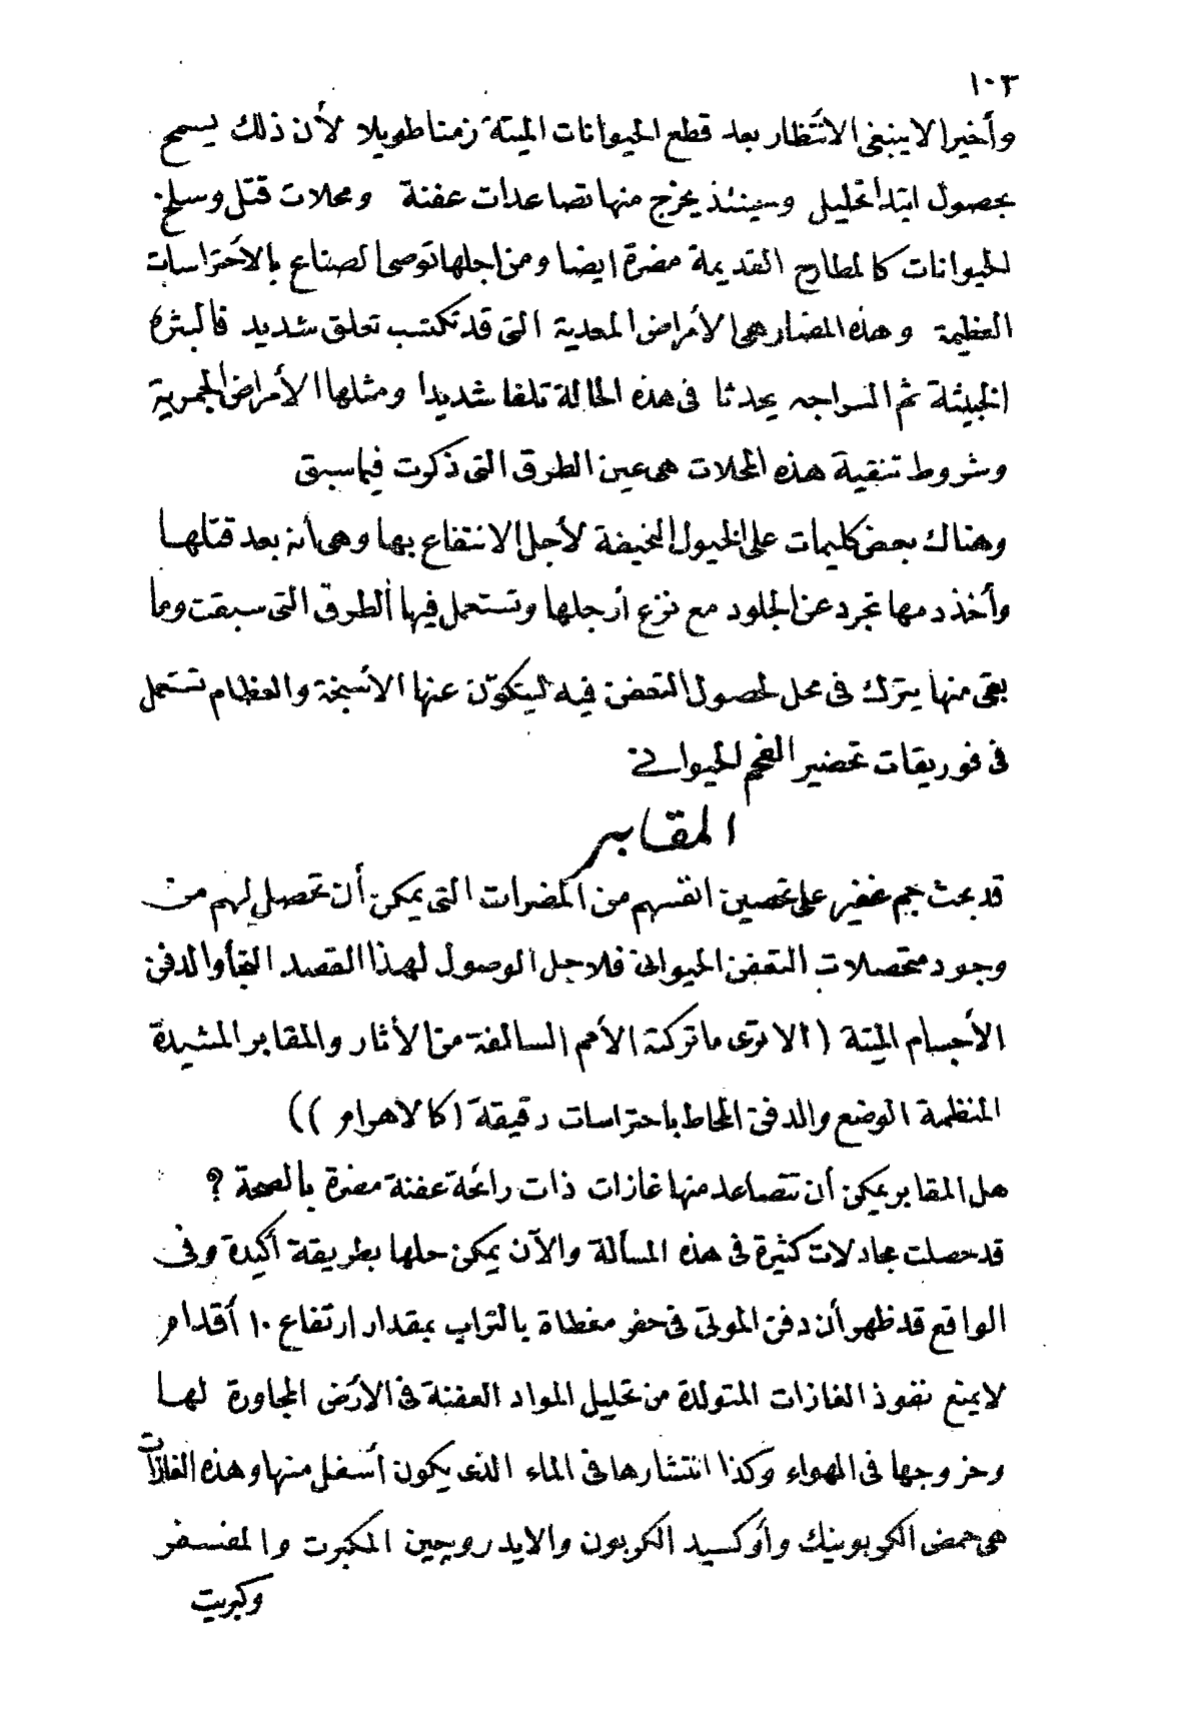 ١٠٣
وأخيرا لا ينبغى الانتظار بعد قطع الحيوانات الميتة زمنا طويلا لأن ذلك يسمح
بحصول ابتدا تحليل وحينئذ يخرج منها تصاعدات عفنة ومحلات قتل وسلخ
الحيوانات كالمطارح القديمة مضرة ايضا ومن اجلها توصى الصناع بالأحتراسات
العظيمة وهذه المضار هى الأمراض المعدية التى قد تكتسب تعلق شديد فالبثرة
الخبيثة ثم السراجه يحدثا فى هذه الحالة تلفا شديدا ومثلها الأمراض الجمرية
وشروط تنقية هذه المحلات هى عين الطرق التى ذكرت فيما سبق
وهناك بعض كليمات على الخيول النحيفة لأجل الانتفاع بها وهى أنه بعد قتلها
وأخذ دمها تجرد عن الجلود مع نزع أرجلها وتستعمل فيها الطرق التى سبقت وما
بقى منها يترك فى محل لحصول التعفن فيه ليتكون عنها الأسبخة والعظام تستعمل
فى فوريقات تحضير الفحم الحيوانى
المقابر
قد بحث جم غفير على تحصين انفسهم من المضرات التى يمكن أن تحصل لهم من
وجود متحصلات التعفن الحيوانى فلاجل الوصول لهذا القصد التجأوا لدفن
الأجسام الميتة (الا ترى ما تركته الأمم السالفة من الأثار والمقابر المشيدة
المنظمة الوضع والدفن المحاط باحتراسات دقيقة (كالاهرام))
هل المقابر يمكن أن تتصاعد منها غازات ذات رائحة عفنة مضرة بالصحة ؟
قد حصلت مجادلات كثيرة فى هذه المسألة والآن يمكن حلها بطريقة أكيدة وفى
الواقع قد ظهر أن دفن الموتى فى حفر مغطاة بالتراب بمقدار ارتفاع ١٠ أقدام
لا يمنع نفوذ الغازات المتولدة من تحليل المواد العفنة فى الأرض المجاورة لها
وخروجها فى الهواء وكذا انتشارها فى الماء الذى يكون أسفل منها وهذه الغازات
هى حمض الكربونيك وأوكسيد الكربون والايدروجين المكبرت والمفسفر
وكبريت